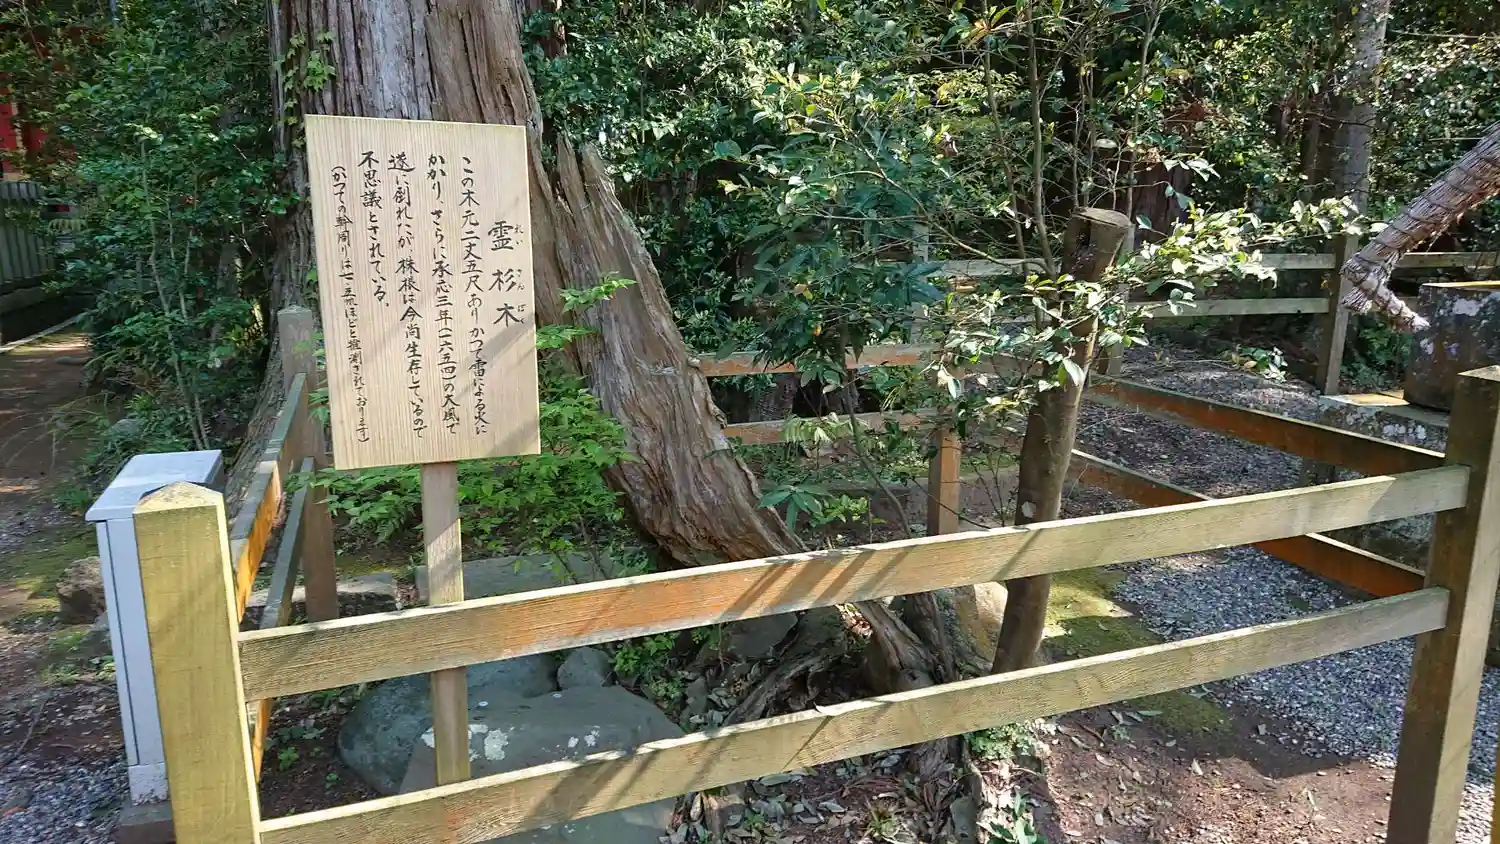 霊杉木
れいさんぼく
この木元二丈五尺ありかつて雷による火に
かかり、さらに承応三年(一六五四)の大風で
遂に倒れたが、株根は今尚生存しているので
不思議とされている。
(かつての幹周りは七、五㍍ほどと推測されております)